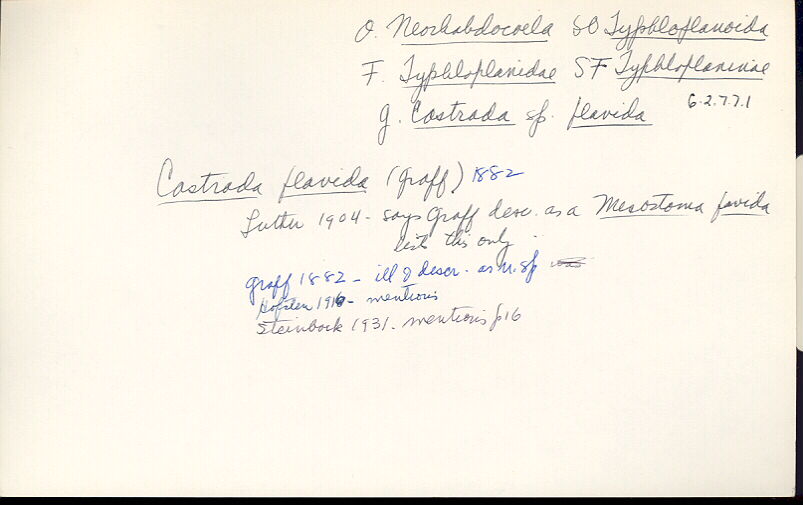 O. Neorhabdocoela SO Typhloplanoida
F. Typhloplanidae SF Typhloplaninae
g. Castrada sp. flavida 6.2.7.7.1
Castrada flavida (Graff) 1882
Luther 1904 - says Graff desc. as a Mesostoma favida
lists this only
Graff 1882 - ill & descr. as n. sp
Hofsten - mentions
Steinbock 1931. mentions p16